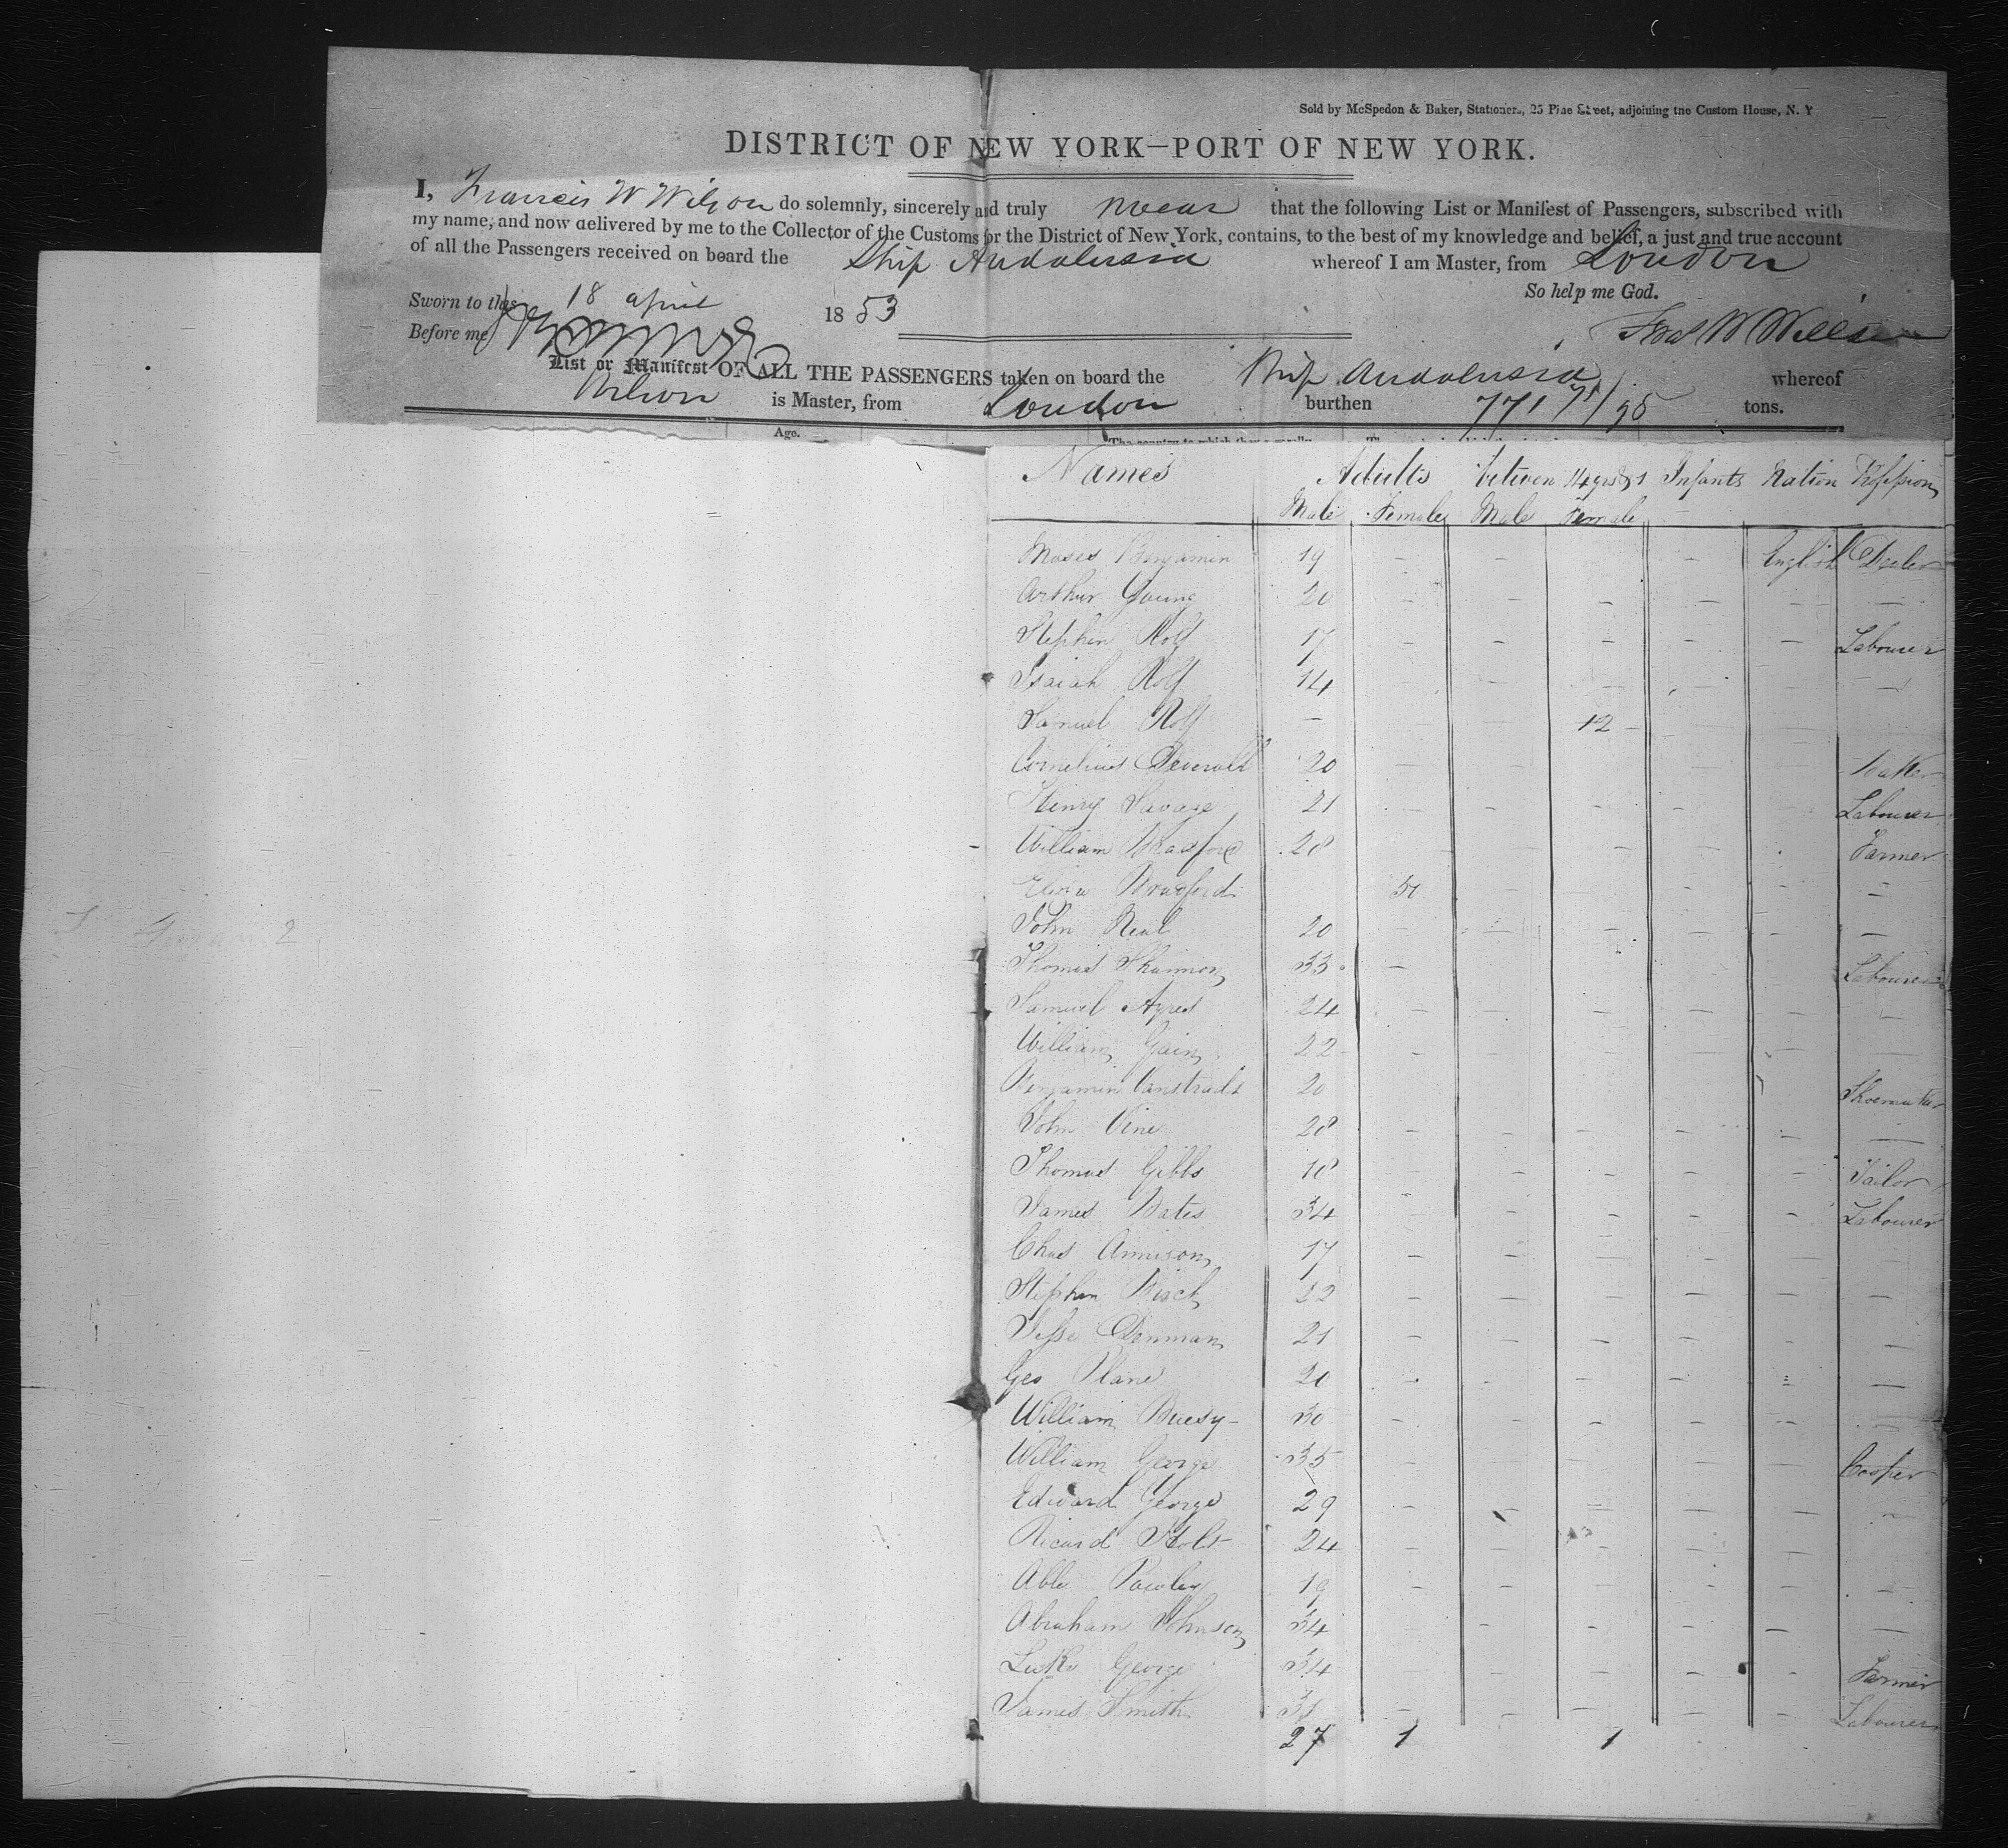 Sold by McSpedon & Baker, Stationers, 25 Pine Street, adjoining the Custom House, N. Y
DISTRICT OF NEW YORK—PORT OF NEW YORK.
I, Francis W Wilson do solemnly, sincerely and truly swear that the following List or Manifest of Passengers, subscribed with
my name, and now delivered by me to the Collector of the Customs for the District of New York, contains, to the best of my knowledge and belief, a just and true account
of all the Passengers received on board the Ship Andalusia whereof I am Master, from London
So help me God.
Sworn to this 18 april 1853
Before me
W Wilson
List or Manifest OF ALL THE PASSENGERS taken on board the Ship Andalusia whereof
Wilson is Master, from London burthen 771 71/95 tons.
Age.
The country to which they severally
Names Adults between 14 yrs & 1 Infants Nation Profession
Male Female Male Female
Moses Benjamin 19 — — — English Dealer
Arthur Young 20 — — — — — —
Stephen Rolf 17 — — — — — Labourer
Isaiah Rolf 14 — — — — — —
Samuel Rolf — — — 12 — —
Cornelius 20 — — — —
Henry Savage 21 — — — — Labourer
William Bradford 28 — — — — Farmer
Bradford — — — — —
John Neal 20 — — — — — —
Thomas Shannon 33 — Labourer
Samuel Ayres 24 — — — — — —
William Gain 22 — — — — — —
Benjamin 20 Shoemaker
John Vine 28 — — — — — —
Thomas Gibbs 18 — — — — — Tailor
James Bates 34 — — — — — Labourer
Chas Annison 17 — — — — — —
Stephen 22 — — — — — —
Jesse Denman 21 — — — — — —
Geo Plane 20 — — — — — —
William 30 — — — — — —
William George 35 — — — — — Cooper
Edward George 29 — — — — — —
Ricard Holt 24 — — — — — —
Able 19 — — — — — —
Abraham Johnson 34 — — — — — —
Luke George 34 — — — — — Farmer
James Smith — — — — — Labourer
27 1 1